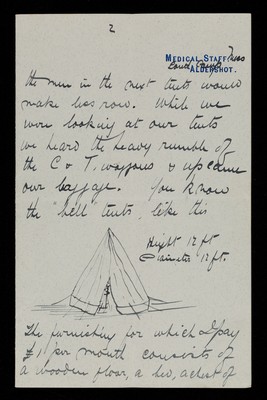 2
MEDICAL STAFF
ALDERSHOT.
the men in the next tents would
make less row. While we
were looking at our tents
we heard the heavy rumble of
the C & T. waggons & up came
our baggage. You know
the "bell tents, like this
Height 12 ft
Diameter 12 ft.
The furnishing for which I pay
£1 per month consists of
a wooden floor, a bed, a chest of